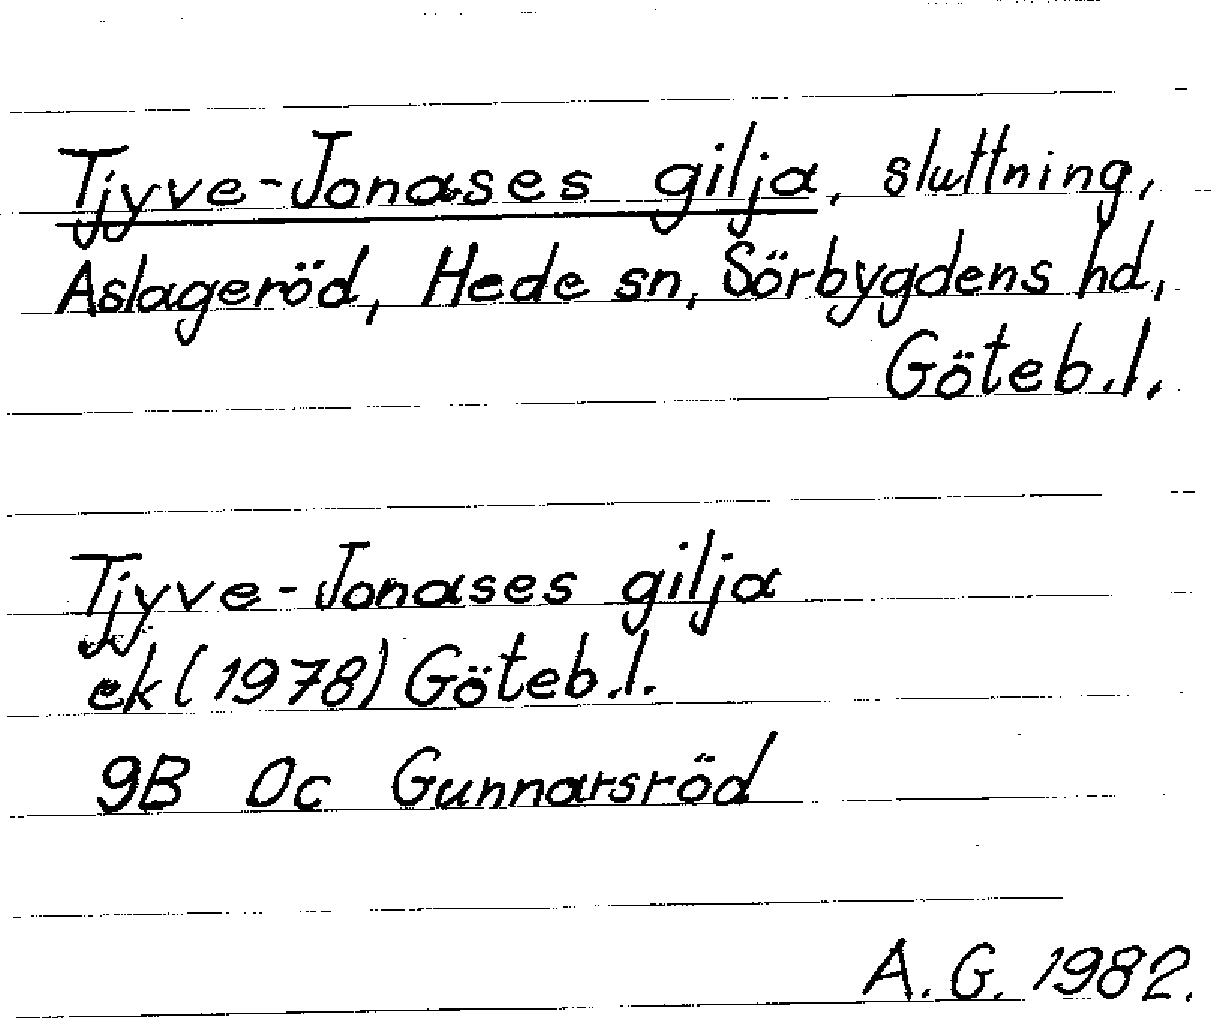 Tjyve-Jonases gilja, sluttning,
Aslageröd, Hede sn, Sörbygdens hd,
Göteb.l.
Tjyve-Jonases gilja
ek (1978) Göteb.l.
9B 0c Gunnarsröd
A.G. 1982.